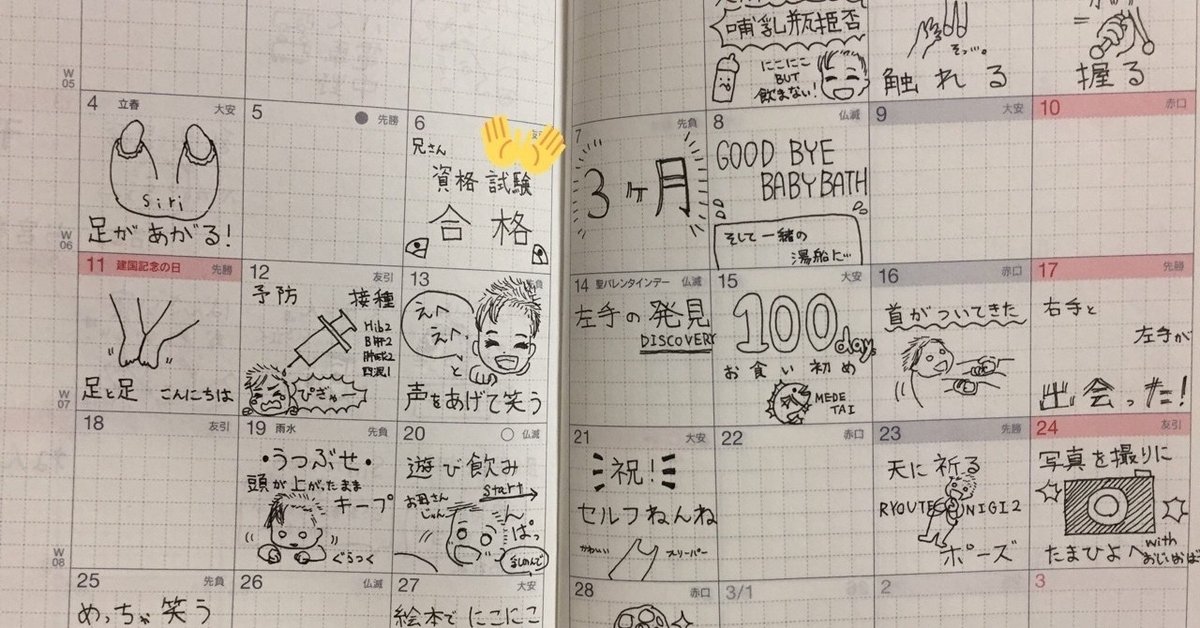 哺乳瓶拒否
にこにこ
BUT
飲まない!
そっ…。
触れる
握る
W
05
4 立春 大安
siri
足があがる!
5 先勝
6
兄さん
資格試験
合格
7 先負
3ヶ月
8 仏滅
GOOD BYE
BABY BATH
そして一緒の
湯船に…
9 大安
10 赤口
W
06
11 建国記念の日 先勝
足と足 こんにちは
12 友引
予防 接種
Hib2
B肝2
ぴぎゃー
13
えへ
えへっ
と
声をあげて笑う
14 聖バレンタインデー 仏滅
左手の発見
DISCOVERY
15 大安
100days
お食い初め
MEDE
TAI
16 赤口
首がついてきた
17 先勝
右手と
左手が
出会った!
W
07
18 友引
19 雨水 先負
・うつぶせ・
頭が上がったまま
キープ
ぐらつく
20 仏滅
遊び飲み
start
お母さん
んぱっ
21 大安
祝!
セルフねんね
かわいい スリーパー
22 赤口
23 先勝
天に祈る
RYOUTE NIGI2
ポーズ
24 友引
写真を撮りに
たまひよへ with
W
08
25 先負
めっちゃ笑う
26 仏滅
27 大安
絵本でにこにこ
28 赤口
3/1
2
3